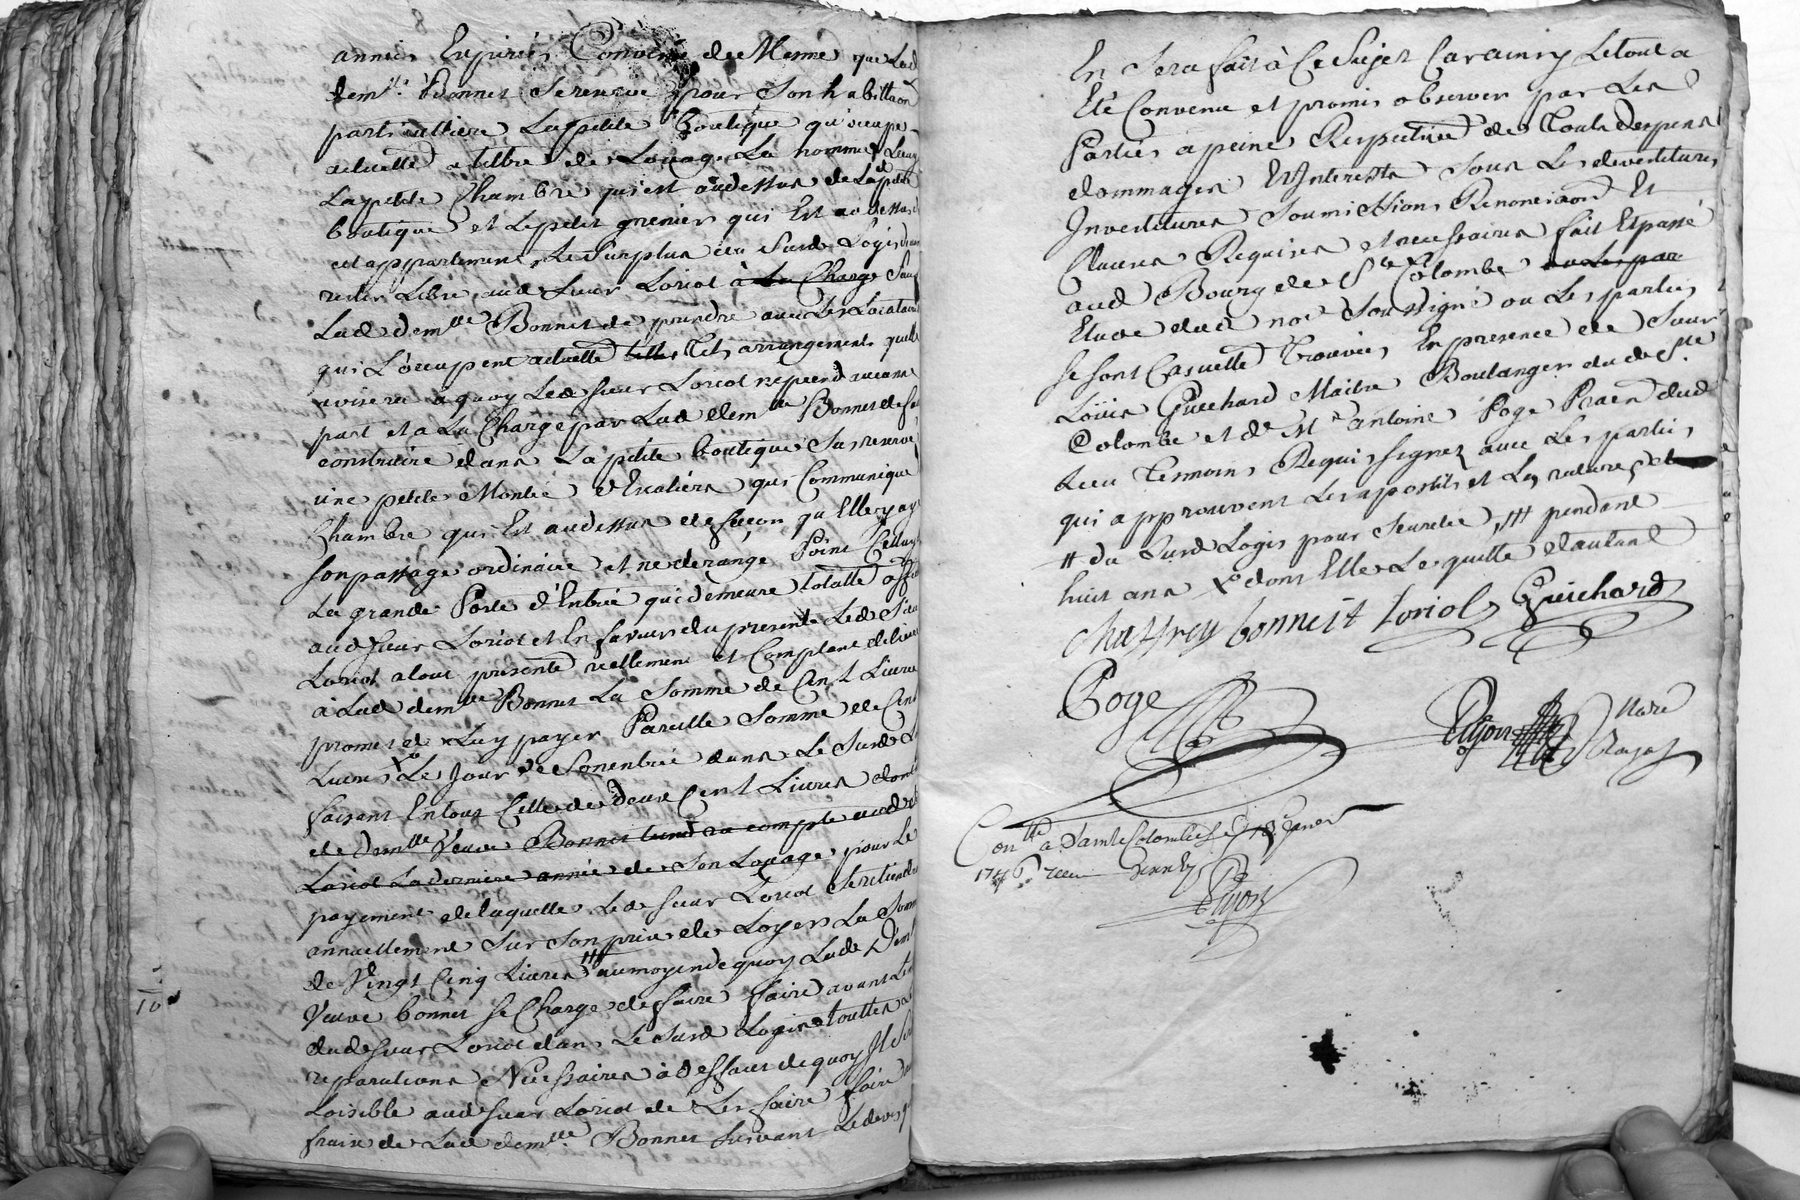 années Expirées Convenu de Meme que Lad
demlle Bonnet Se reserve pour Son habitaon
particulliere La petite Boutique qu'occupe
actuellt a tiltre de Louage La nommée
La petite Chambre qui est audessus de Lad petite
boutique et Le petit grenier qui Est audessus
cet appartement, Le Surplus du Surd Logis d
rester Libre aud Sieur Loriol à La Charge Sauf
Lad demlle Bonnet de prendre avec Les Locataires
qui L'occupent actuellt telles Tels arrangements quelle
avisera a quoy Led sieur Loriol ne prend aucune
part et a La Charge par Lad demlle Bonnet de faire
construire dans La petite boutique Sus reservée
une petite Montée d'Escaliers qui Communique
Chambre qui Est audessus de façon qu'Elle y ay
son passage ordinaire et ne derange Point Celluy
La grande Porte d'Entrée qui demeure totallt
aud sieur Loriol et En faveur du present Led Sieur
Loriol a tout presentt reellement et Comptant delivré
à Lad demlle Bonnet La Somme de Cent Livres
promet de Luy payer Pareille Somme de Cent
Livres Le Jour de Son entrée dans Le Surd L
faisant En tout Celle de deux Cent Livres dont
de Demlle Veuve Bonnet tiendra compte aud
Loriol La derniere année de Son Louage pour Le
payement de laquelle Led sieur Loriol Se retiendra
annuellement Sur Son prix de Loyer La Somme
de Vingt Cinq Livres # au moyen de quoy Lade Demlle
Veuve bonnet se Charge de faire faire avant L
dud sieur Loriol dans Le Surd Logis touttes
reparations Necessaires à deffaut de quoy Il Sera
Loisible aud sieur Loriol de Les faire faire aux
fraix de Lad demlle Bonnet Suivant Le devis q
10
En Sera fait à Ce Sujet Car ainsy Le tout a
Eté Convenu et promis observer par Les
Parties a peine Respective de Touts despens
dommages Et Interests Sous Les devestitures
Investitures Soumissions Renonciaons Et
Clauses Requises et necessaires fait Et passé
aud Bourg de Ste Colombe ou Les par
Etude dud nore Soussigné ou Les parties
se sont Casuellt Trouvées En presence de Sieur
Loüis Guichard Maitre Boulanger dud Ste
Colombe et de Mre antoine Poge Praen dud
Lieu Temoins Requis signez avec Les parties
qui approuvent Les apostils et Les ratures
# du Surd Logis pour Seureté, ### pendant
huit ans X dont Elle Le quitte d'autant
chaffrey bonnest Loriol Guichard
Poge Dijon Nore Royal
Conlle a Sainte Colombe Le 8e Janer
1746 recu
Dijon